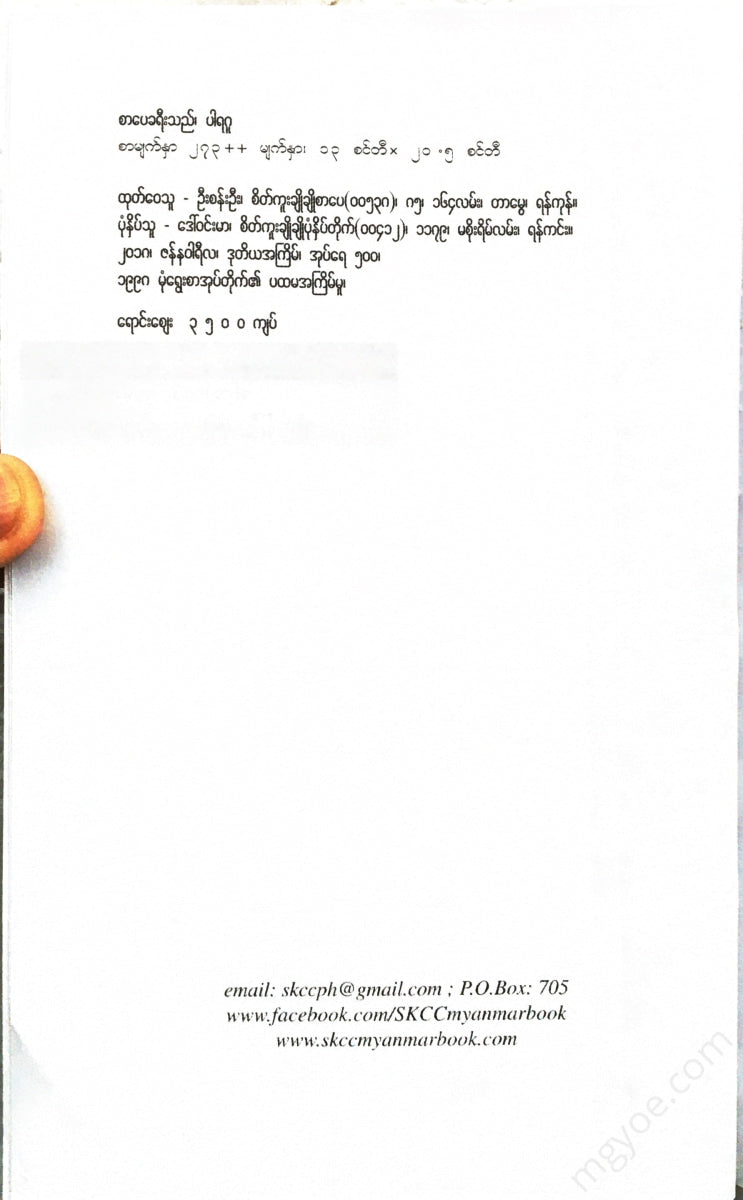 စာပေခရီးသည်၊ ပါရဂူ
စာမျက်နှာ ၂၇၃++ မျက်နှာ၊ ၁၃ စင်တီ× ၂၀.၅ စင်တီ
ထုတ်ဝေသူ - ဦးစန်းဦး၊ စိတ်ကူးချိုချိုစာပေ(၀၀၅၃၈)၊ ၈၅၊ ၁၆၄လမ်း၊ တာမွေ၊ ရန်ကုန်။
ပုံနှိပ်သူ - ဒေါ်ဝင်းမာ၊ စိတ်ကူးချိုချိုပုံနှိပ်တိုက်(၀၀၄၁၂)၊ ၁၁၇၉၊ မစိုးရိမ်လမ်း၊ ရန်ကင်း။
၂၀၁၈၊ ဇန်နဝါရီလ၊ ဒုတိယအကြိမ်၊ အုပ်ရေ ၅၀၀၊
၁၉၉၈ မုံရွေးစာအုပ်တိုက်၏ ပထမအကြိမ်မူ၊
ရောင်းဈေး ၃၅၀၀ ကျပ်
email: skccph@gmail.com ; P.O.Box: 705
www.facebook.com/SKCCmyanmarbook
www.skccmyanmarbook.com
mgyoe.com